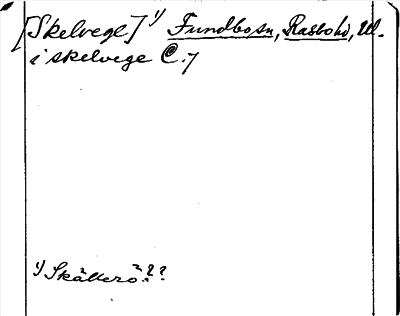 [Skelvege] 1) Fundbosn, Rasbohd, Ul.
i skelvege C.7
1) Skällerö???